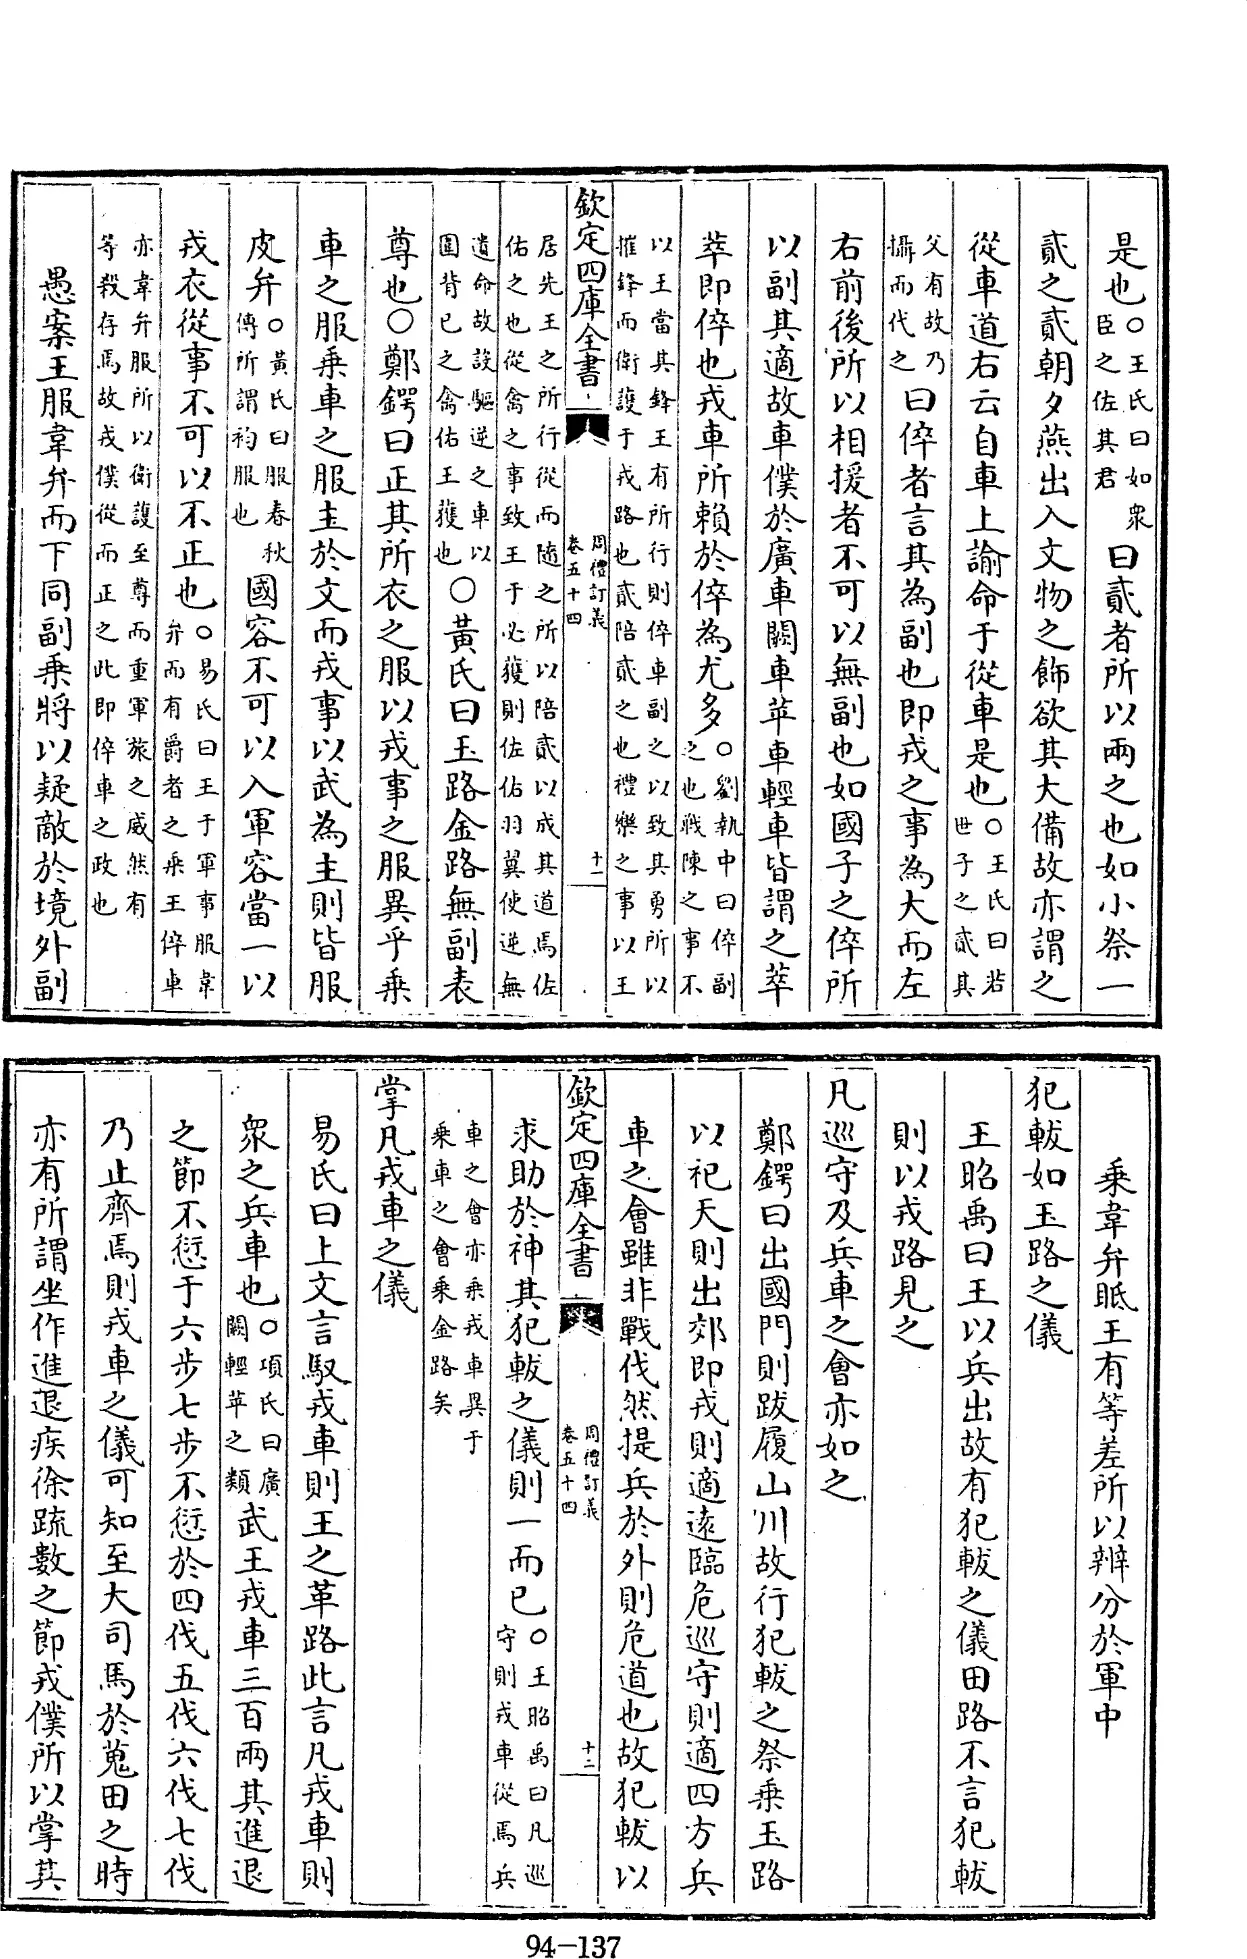 是也○王氏曰如衆臣之佐其君曰貳者所以兩之也如小祭一
貳之貳朝夕燕出入文物之飾欲其大備故亦謂之
從車道右云自車上諭命于從車是也○王氏曰若世子之貳其
父有故乃攝而代之曰倅者言其為副也即戎之事為大而左
右前後所以相援者不可以無副也如國子之倅所
以副其適故車僕於廣車闕車苹車輕車皆謂之萃
萃即倅也戎車所賴於倅為尤多○劉執中曰倅副之也戰陳之事不
以王當其鋒王有所行則倅車副之以致其勇所以
摧鋒而衛護于戎路也貳陪貳之也禮樂之事以王
欽定四庫全書
周禮訂義
卷五十四
十二
居先王之所行從而隨之所以陪貳以成其道焉佐
佑之也從禽之事致王于必獲則佐佑羽翼使逆無
遺命故設驅逆之車以圍背已之禽佑王獲也○黃氏曰玉路金路無副表
尊也○鄭鍔曰正其所衣之服以戎事之服異乎乘
車之服乘車之服主於文而戎事以武為主則皆服
皮弁○黃氏曰服春秋傳所謂袀服也國容不可以入軍容當一以
戎衣從事不可以不正也○易氏曰王于軍事服韋弁而有爵者之乘王倅車
亦韋弁服所以衛護至尊而重軍旅之威然有
等殺存焉故戎僕從而正之此即倅車之政也
愚案王服韋弁而下同副乘將以疑敵於境外副
乘韋弁眡王有等差所以辨分於軍中
犯軷如玉路之儀
王昭禹曰王以兵出故有犯軷之儀田路不言犯軷
則以戎路見之
凡巡守及兵車之會亦如之
鄭鍔曰出國門則跋履山川故行犯軷之祭乘玉路
以祀天則出郊即戎則適遠臨危巡守則適四方兵
車之會雖非戰伐然提兵於外則危道也故犯軷以
欽定四庫全書
周禮訂義
卷五十四
十二
求助於神其犯軷之儀則一而已○王昭禹曰凡巡守則戎車從焉兵
車之會亦乘戎車異于
乘車之會乘金路矣
掌凡戎車之儀
易氏曰上文言馭戎車則王之革路此言凡戎車則
衆之兵車也○項氏曰廣闕輕苹之類武王戎車三百兩其進退
之節不愆于六步七步不愆於四伐五伐六伐七伐
乃止齊焉則戎車之儀可知至大司馬於蒐田之時
亦有所謂坐作進退疾徐疏數之節戎僕所以掌其
94-137